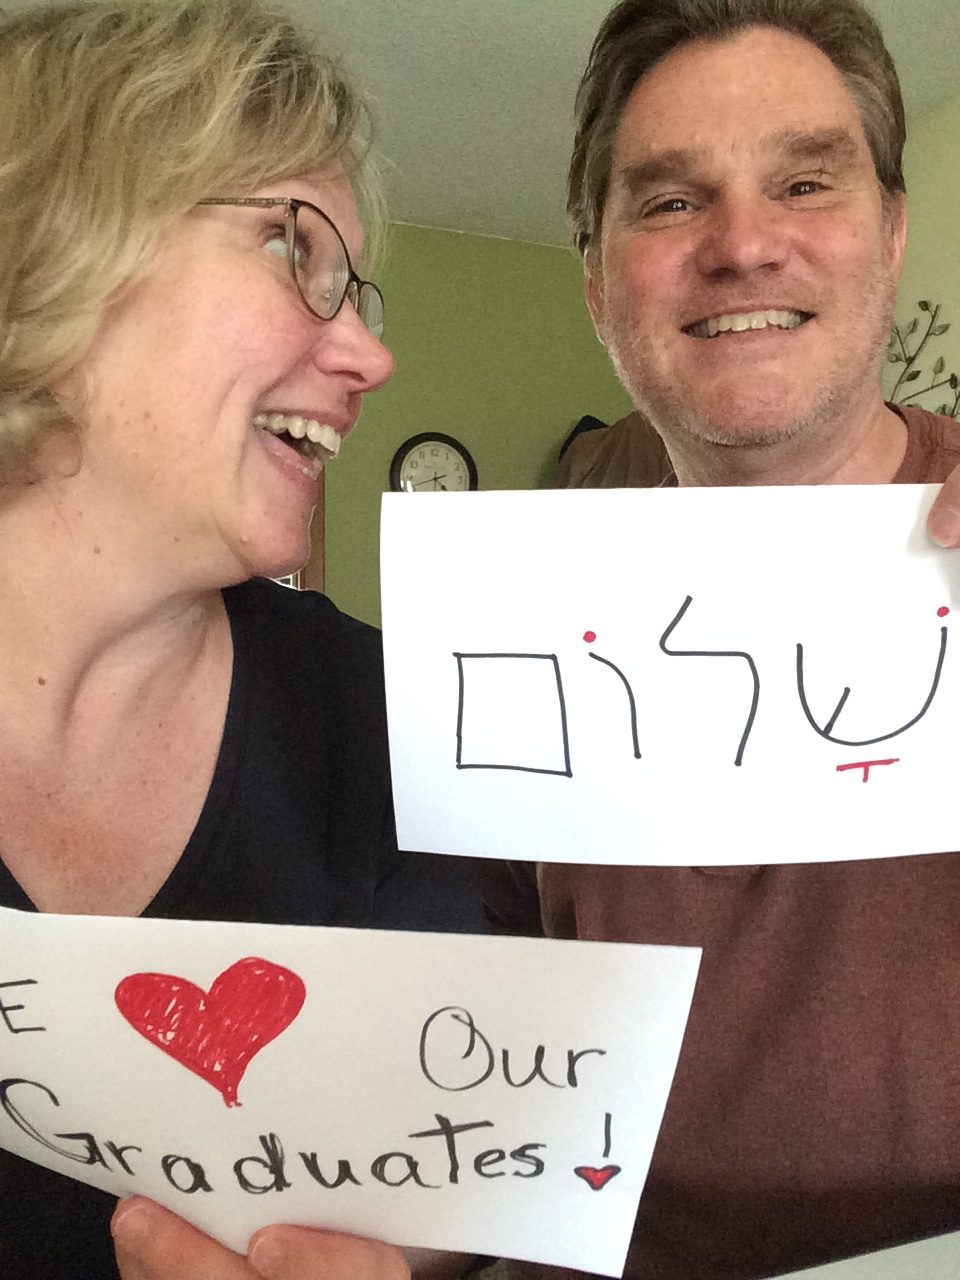 שָׁלוֹם
E ❤ Our
Graduates!